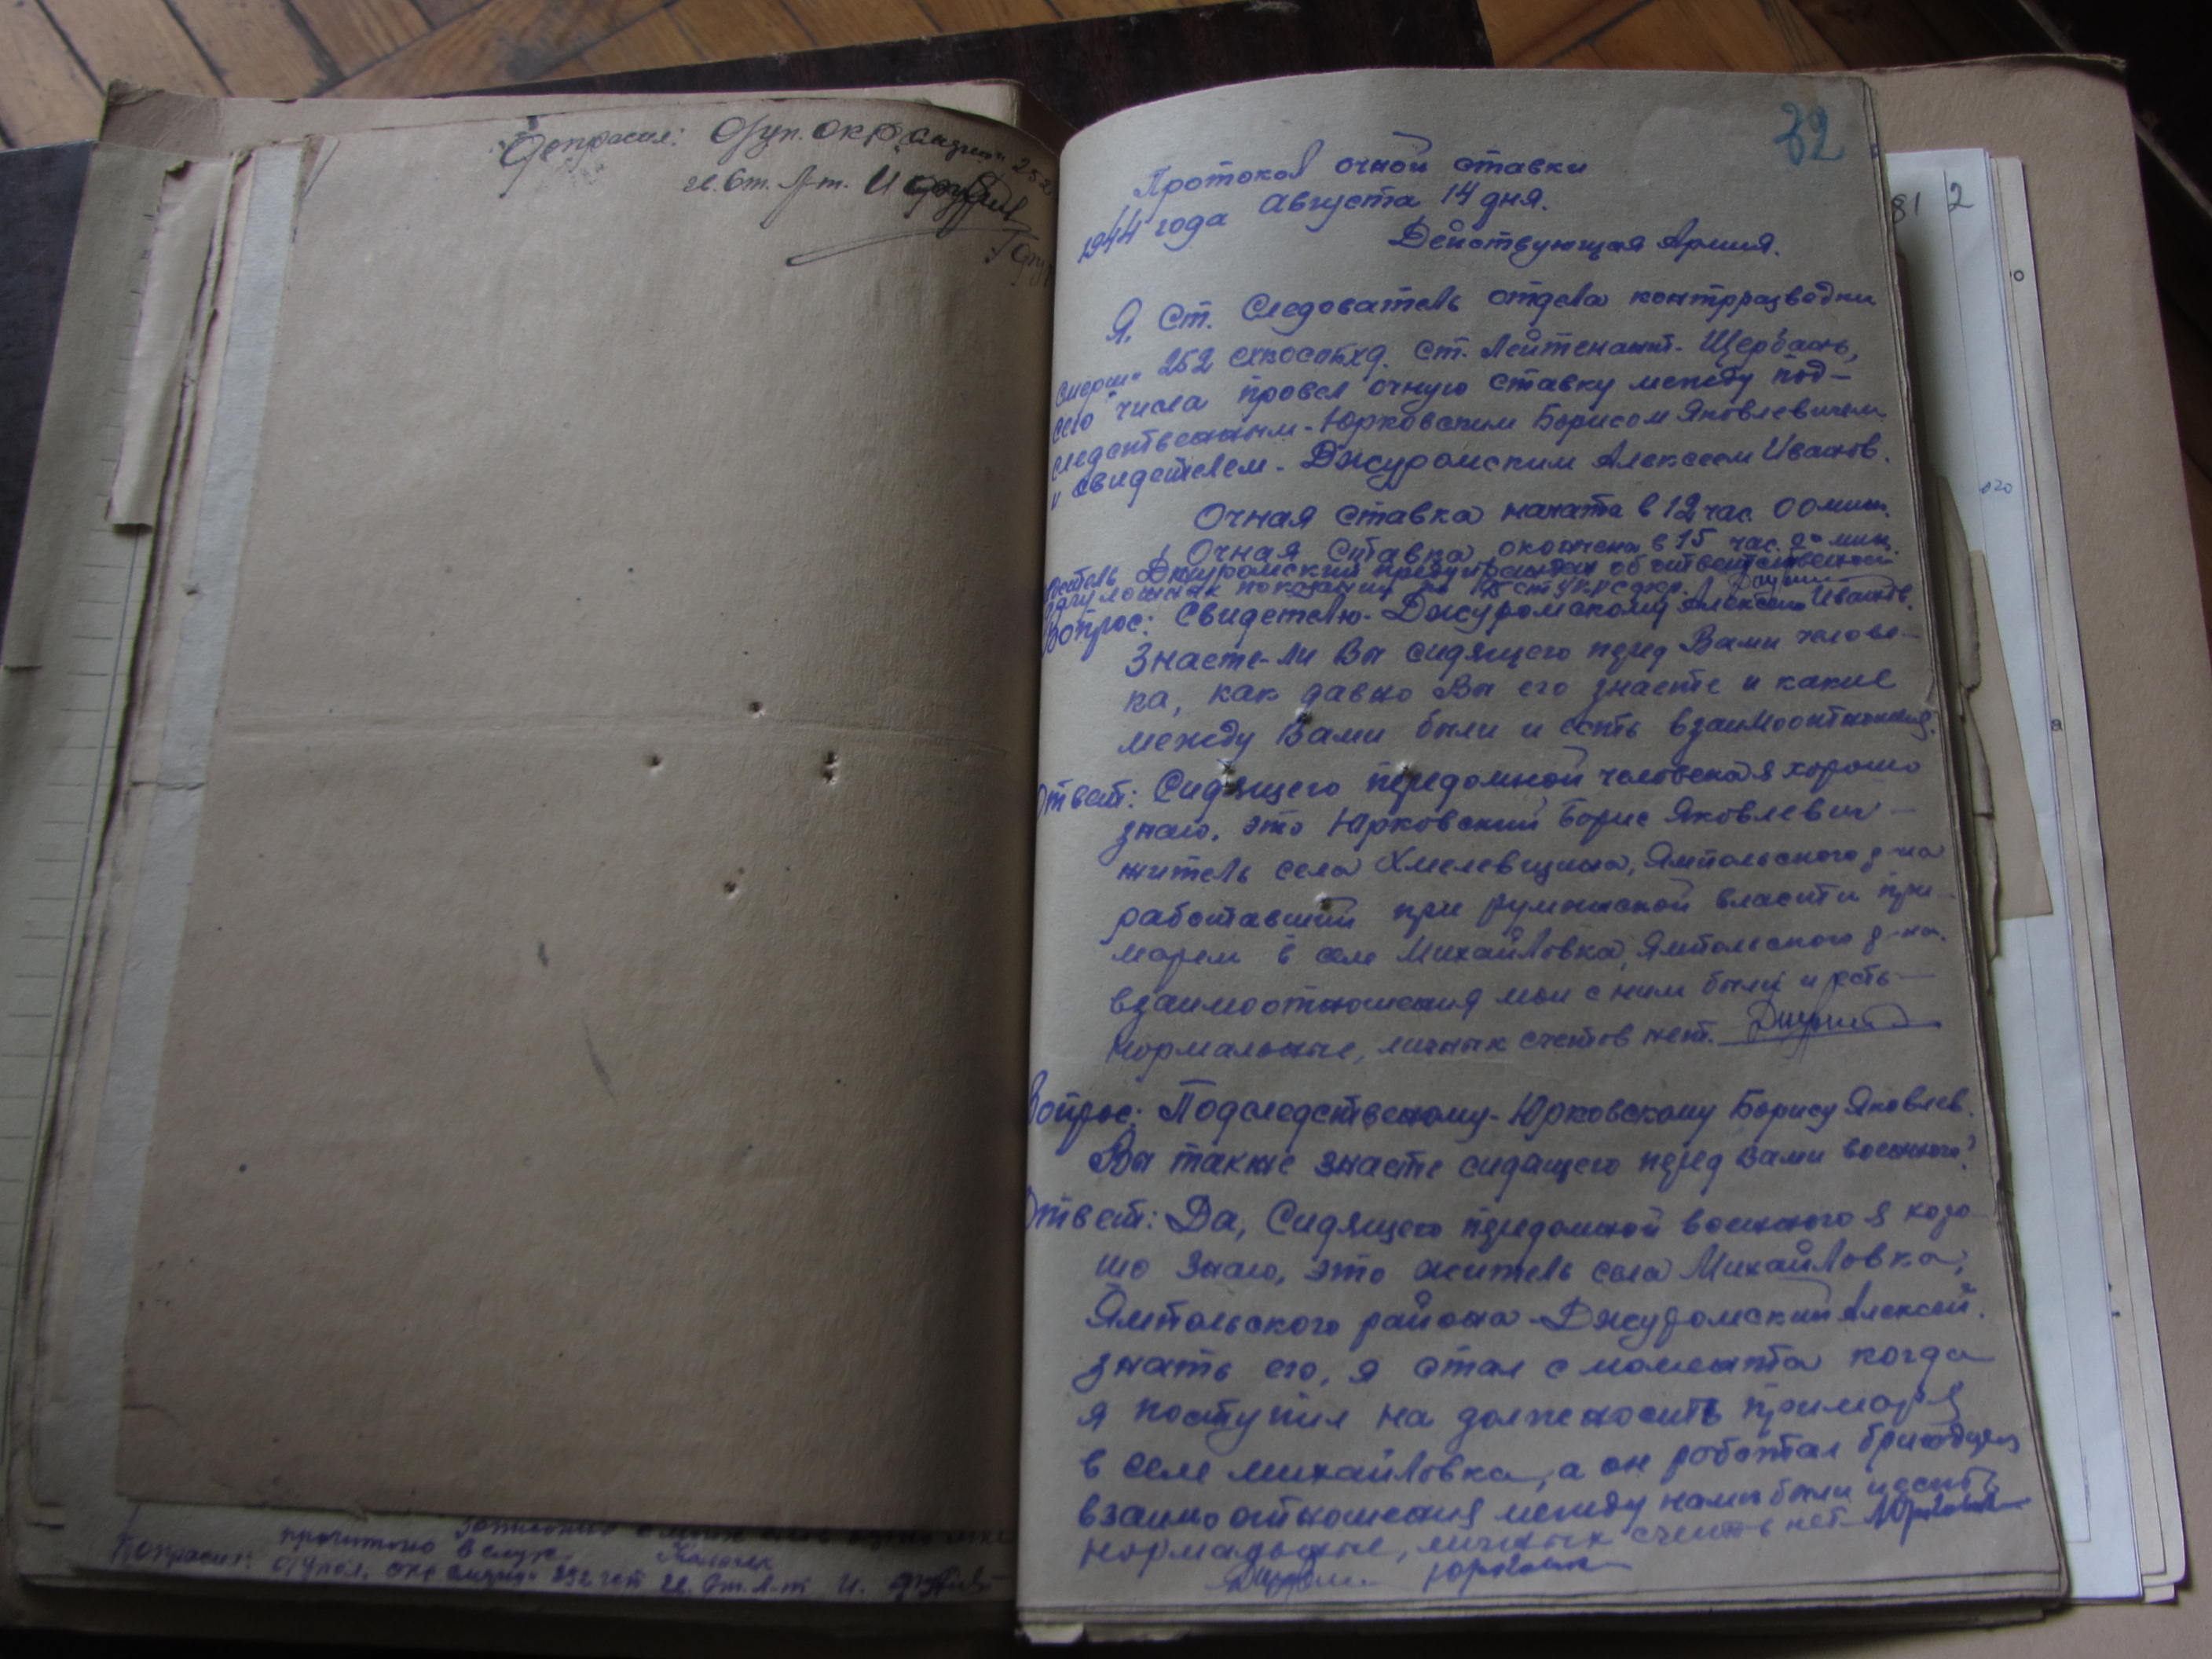 Допросил: О/уп. ОКР "Смерш" 252
гв. Ст. Л-т.
82
Протокол очной ставки
1944 года августа 14 дня.
Действующая Армия.
Я. Ст. Следователь отдела контрразведки
"Смерш" 252 ст. Лейтенант - Щербань,
сего числа провел очную ставку между под-
следственным - Юрковским Борисом Яковлевичем
и свидетелем - Джуромским Алексеем Иванов.
Очная ставка начата в 12 час. 00 мин.
Очная Ставка окончена в 15 час. 20 мин.
Джуромский предупрежден об ответственности
показаний по ст УК УССР.
Вопрос: Свидетелю - Джуромскому Алексею Иванов.
Знаете-ли Вы сидящего перед Вами челове-
ка, как давно Вы его знаете и какие
между Вами были и есть взаимоотношения?
Ответ: Сидящего передомной человека я хорошо
знаю, это Юрковский Борис Яковлевич -
житель села Хмелевщина, Ямпольского р-на
работавший при румынской власти при-
марем в селе Михайловка, Ямпольского р-на.
взаимоотношения мои с ним были и есть -
нормальные, личных счетов нет.
Вопрос: Подследственому - Юрковскому Борису Яковлев.
Вы также знаете сидящего перед вами военного?
Ответ: Да, Сидящего передомной военного я хоро-
шо знаю, это житель села Михайловка,
Ямпольского района - Джуромский Алексей.
знать его, я стал с момента когда
я поступил на должность примаря
в селе Михайловка, а он роботал бригадиром
взаимоотношения между нами были и есть
нормальные, личных счетов нет
прочитано вслух.
Допросил: О/упол. ОКР Смерш 252 гв. Ст. Л-т
81 2